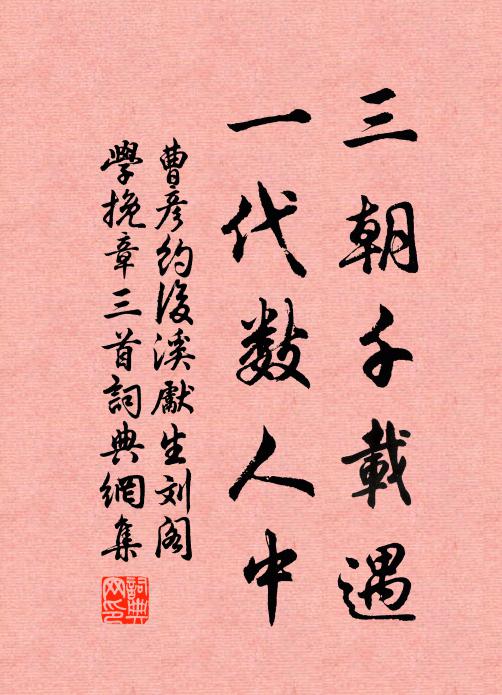 三朝千載遇
一代数人中
曹彦約後溪獻生刘阁
學挽章三首詞典網集
詞典
网印